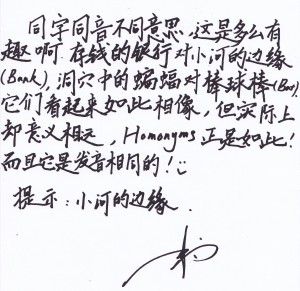 同字同音不同意思，这是多么有
趣啊．存钱的银行对小河的边缘
(Bank)，洞穴中的蝙蝠对棒球棒(Bat).
它们看起来如此相像，但实际上
却意义相远，Homonyms 正是如此！
而且它是发音相同的！
提示：小河的边缘．